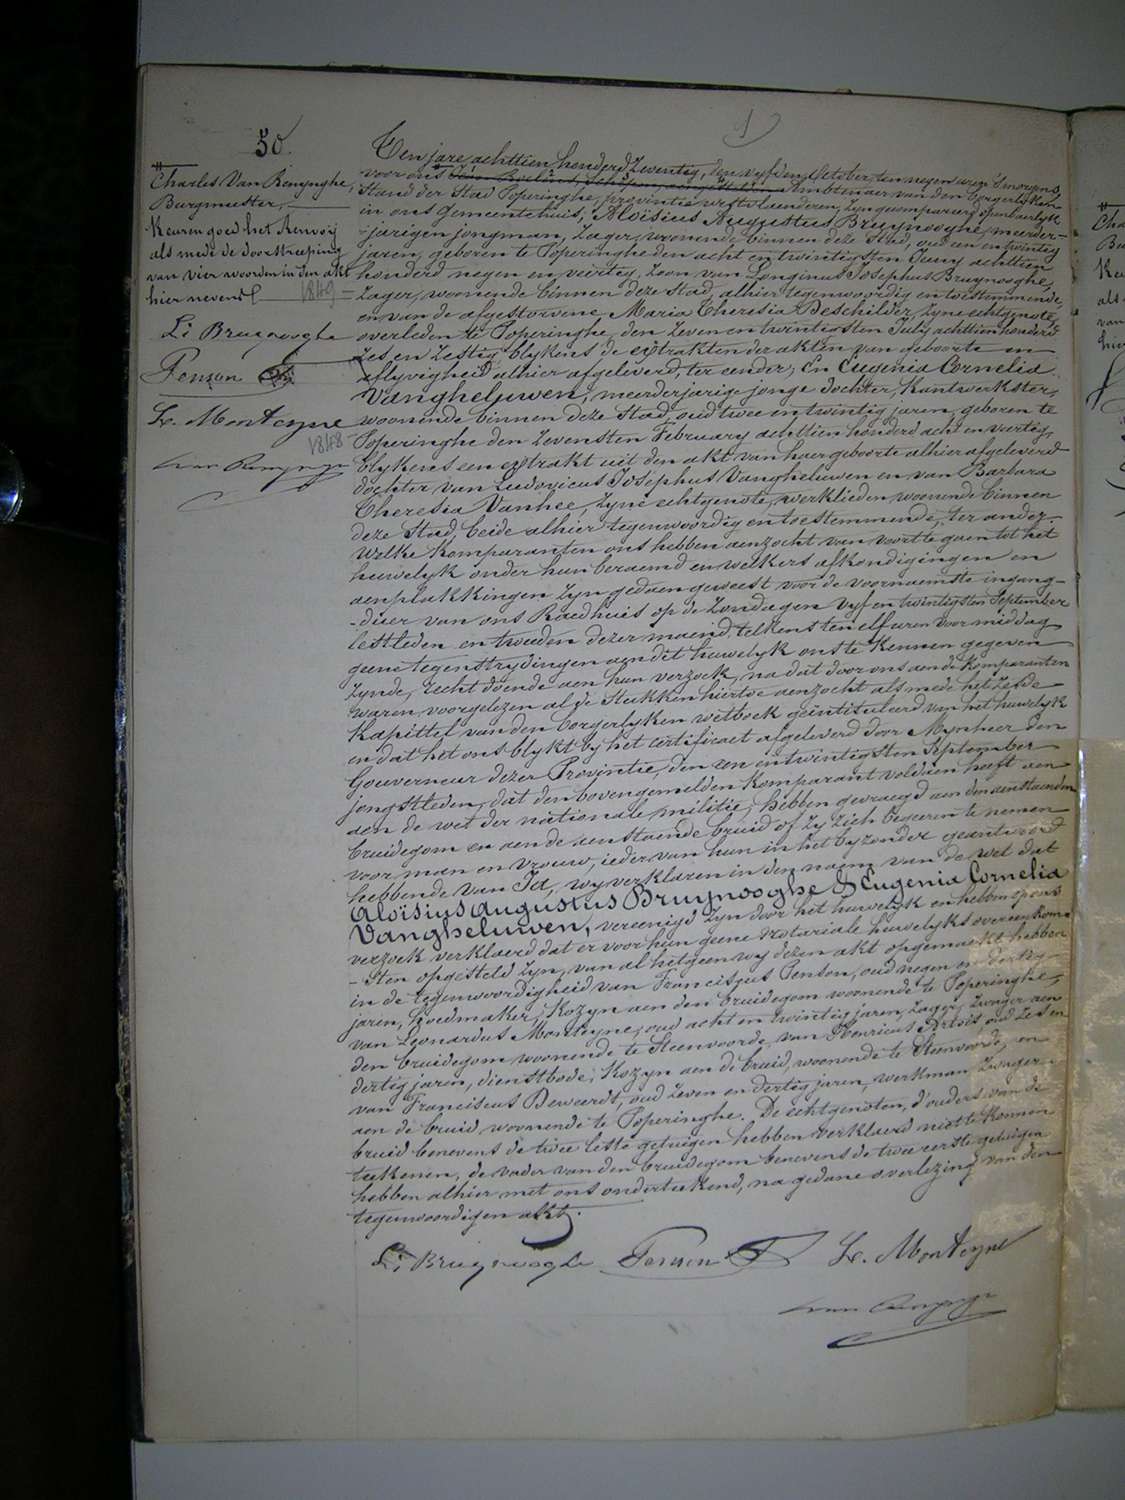 50.
Charles Van Renynghe,
Burgmeester,
Keuren goed het Renvooi
als mede de doorstreeping
van vier woorden in den akt
hier nevens
1849
Li Bruynooghe
Penson
Le. Monteyne
1848
van Renynghe
1
Ten jare achttien honderd Zeventig, den vyfden October, ten negen uren s'morgens,
voor ons Ambtenaer van den borgerlyken
Stand der Stad Poperinghe, provintie westvlaenderen, Zyn gecompareerd openbaerlyk
in ons Gemeentehuis, Aloïsius Augustus Bruynooghe, meerder-
-jarigen jongman, Zager, woonende binnen deze Stad, oud een en twintig
jaren, geboren te Poperinghe den acht en twintigsten Juny achttien
honderd negen en veertig, Zoon van Longinus Josephus Bruynooghe,
Zager, woonende binnen deze stad, alhier tegenwoordig en toestemmende,
en van de afgestorvene Maria Theresia Beschilder, Zyne echtgenote,
overleden te Poperinghe, den Zeven en twintigsten July achttien honderd
Zes en Zestig, blykens de extrakten der akten van geboorte en
aflyvigheid alhier afgeleverd, ter eender; En Eugenia Cornelia
Vangheluwen, meerderjarige jonge dochter, Kantwerkster,
woonende binnen deze Stad, oud twee en twintig jaren, geboren te
Poperinghe den Zevensten February achttien honderd acht en veertig,
blykens een extrakt uit den akt van haer geboorte alhier afgeleverd
dochter van Ludovicus Josephus Vangheluwen en van Barbara
Theresia Vanhee, Zyne echtgenote, werklieden, woonende binnen
deze Stad, beide alhier tegenwoordig en toestemmende, ter ander.
Welke Komparanten ons hebben aenzocht van voort te gaen tot het
huwelyk onder hun beraemd en welkers afkondigingen en
aenplakkingen Zyn gedaen geweest voor de voornaemste ingang-
-duer van ons Raedhuis op de Zondagen vyf en twintigsten September
lestleden en tweeden dezer maend, telkens ten elf uren voor middag
geene tegenstrydingen aen dit huwelyk ons te Kennen gegeven
Zynde, recht doende aen hun verzoek, na dat door ons aen de Komparanten
waren voorgelezen al de Stukken hiertoe aenzocht als mede het Zesde
Kapittel van den borgerlyken wetboek geïntituleerd van het huwelyk
en dat het ons blykt by het certificaet afgeleverd door Mynheer den
Gouverneur dezer Provintie, den een en twintigsten September
jongstleden, dat den bovengemelden Komparant voldaen heeft aen
aen de wet der nationale militie, hebben gevraegd aen den aenstaenden
bruidegom en aen de aenstaende bruid of Zy Zich begeeren te nemen
voor man en vrouw, ieder van hun in het byzonder geantwoord
hebbende van Ja, wy verklaren in den naem van de wet dat
Aloïsius Augustus Bruynooghe & Eugenia Cornelia
Vangheluwen, vereenigd Zyn door het huwelyk en hebben op ons
verzoek verklaerd dat er voor hun geene notariale huwelyks overeenkom-
-sten opgesteld Zyn, van al hetgeen wy dezen akt opgemaekt hebben
in de tegenwoordigheid van Franciscus Penson, oud negen en dertig
jaren, hoedmaker, Kozyn aen den bruidegom woonende te Poperinghe,
van Leonardus Monteyne, oud acht en twintig jaren, Zager, Zwager aen
den bruidegom woonende te Steenvoorde, van Henricus Artois, oud Zes en
dertig jaren, dienstbode, Kozyn aen de bruid, woonende te Steenvoorde, en
van Franciscus Deweerdt, oud Zeven en dertig jaren, werkman, Zwager
aen de bruid woonende te Poperinghe. De echtgenoten, d'ouders van de
bruid benevens de twee leste getuigen hebben verklaerd niet te konnen
teekenen, de vader van den bruidegom benevens de twee eerste getuigen
hebben alhier met ons onderteekend, na gedane overlezing van den
tegenwoordigen akt.
Li Bruynooghe Penson Le. Monteyne
van Renynghe